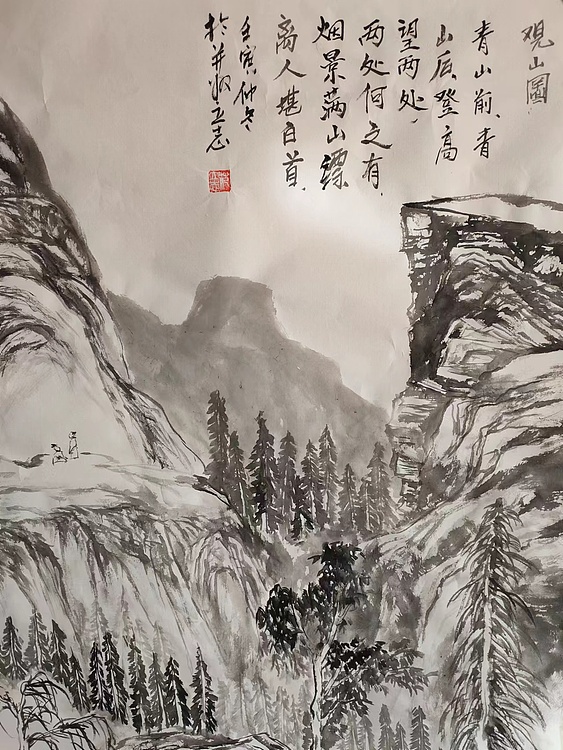 观山图
青山前、青
山后登高
望两处，
两处何之有，
烟景满山缥
离人堪白首，
壬寅仲冬
於并州